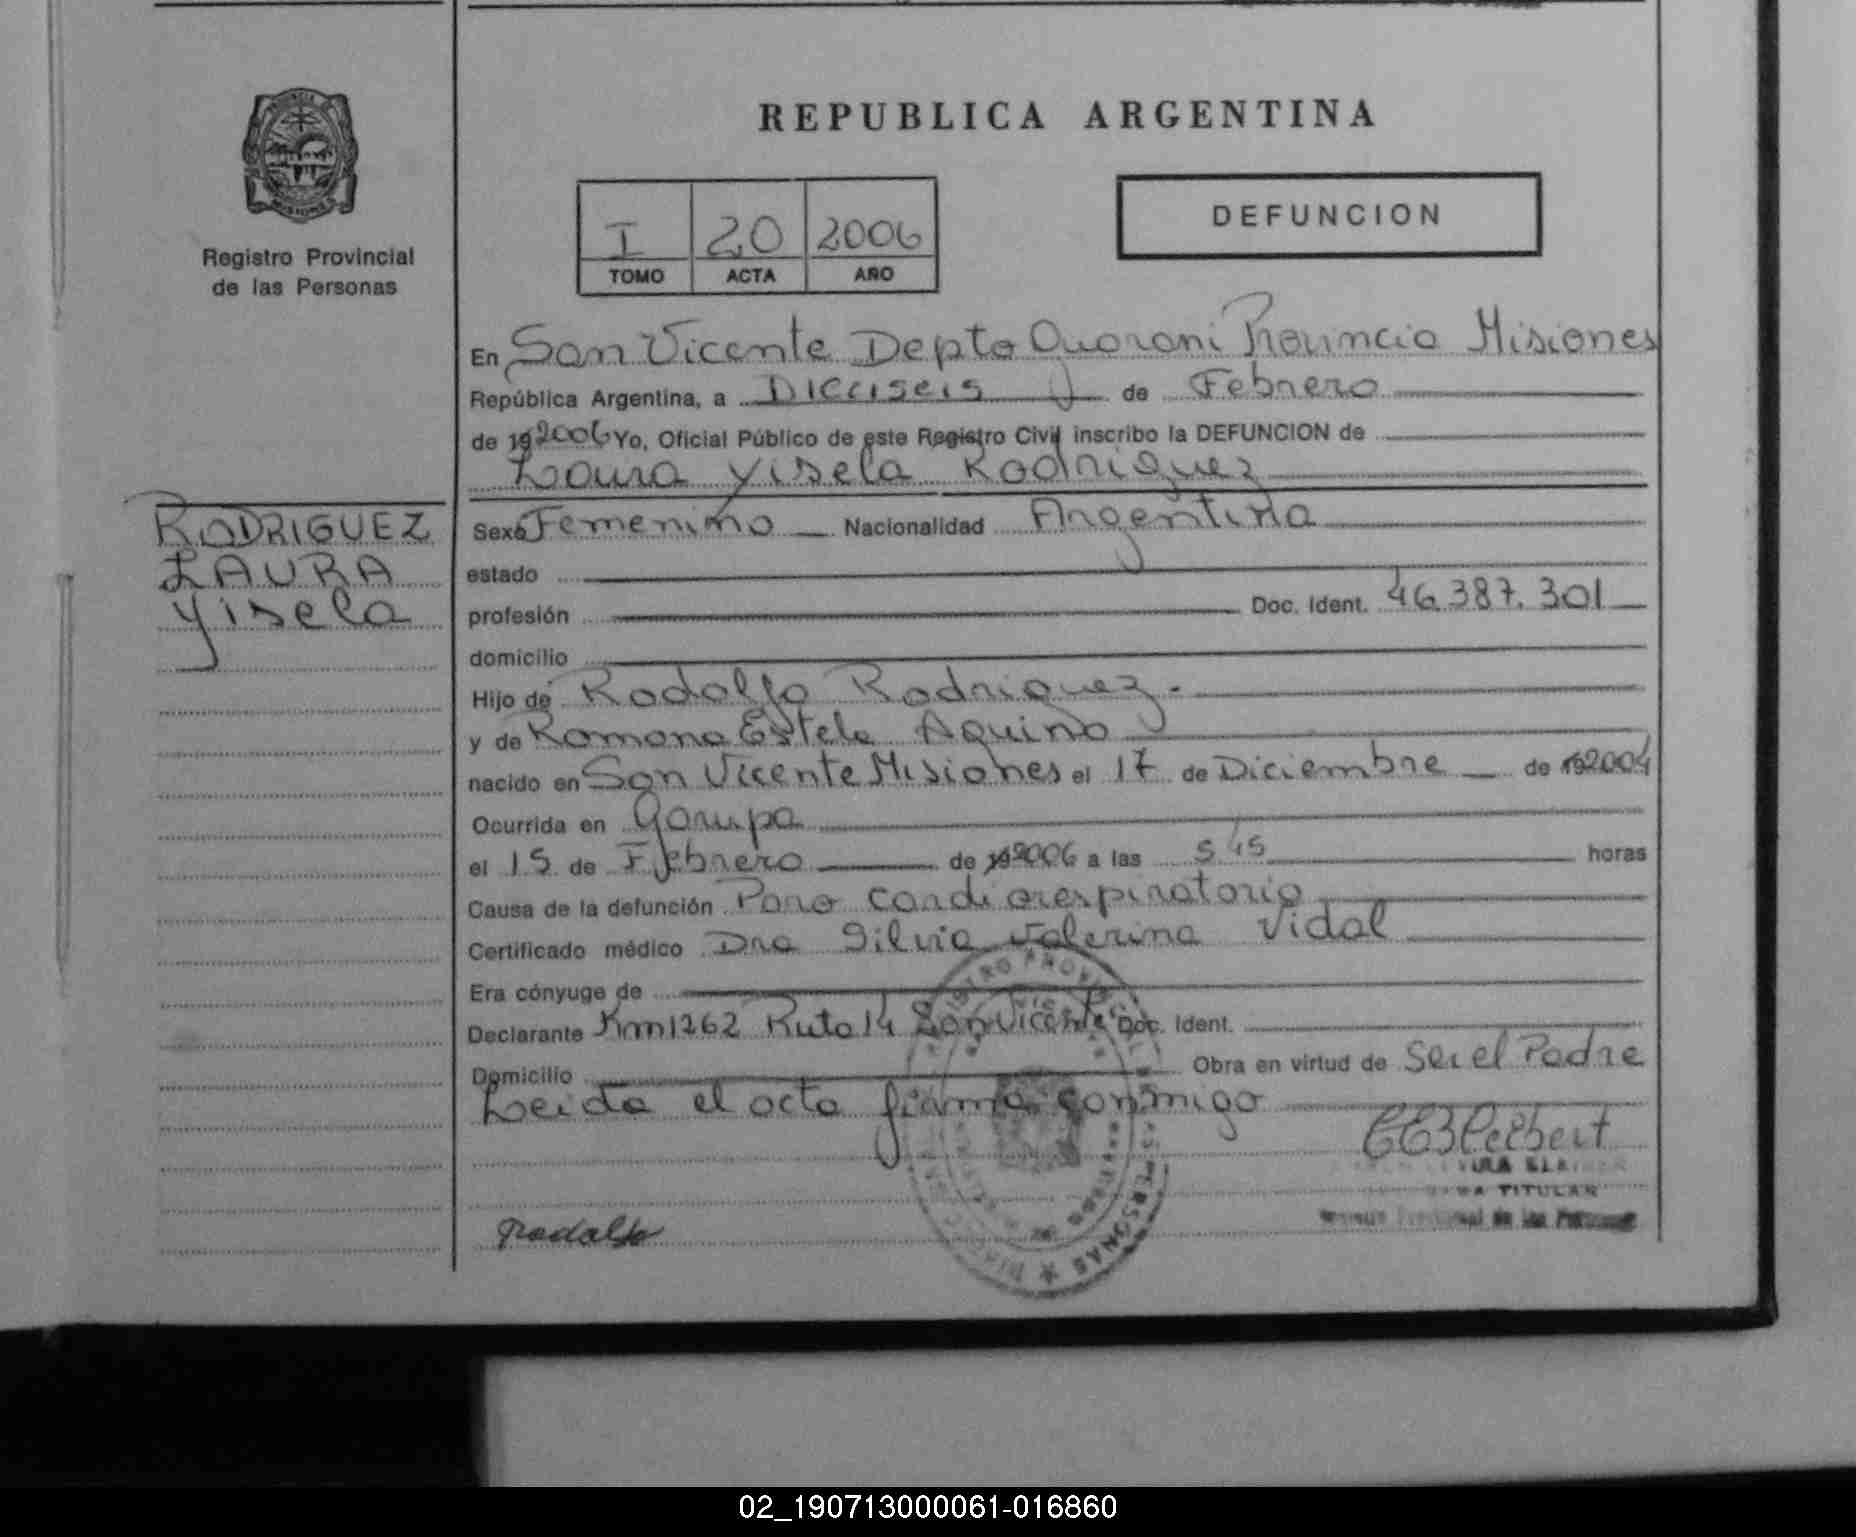 REPUBLICA ARGENTINA
DEFUNCION
I 20 2006
TOMO ACTA AÑO
PROVINCIA DE
MISIONES
Registro Provincial
de las Personas
En San Vicente Depto Guarani Provincia Misiones
República Argentina, a Dieciseis de Febrero
de 19 2006 Yo, Oficial Público de este Registro Civil inscribo la DEFUNCION de
Laura Yisela Rodriguez
RODRIGUEZ
LAURA
Yisela
Sexo Femenino Nacionalidad Argentina
estado
profesión Doc. Ident. 46.387.301
domicilio
Hijo de Rodolfo Rodriguez.
y de Ramona Estela Aquino
nacido en San Vicente Misiones el 17 de Diciembre de 19 2004
Ocurrida en Garupa
el 15 de Febrero de 19 2006 a las 5 45 horas
Causa de la defunción Paro cardiorespiratorio
Certificado médico Dra Silvia Valerina Vidal
Era cónyuge de
Declarante Km 1262 Ruta 14 San Vicente Doc. Ident.
Domicilio Obra en virtud de Ser el Padre
Leida el acta firma conmigo
TITULAR
de las Personas
Rodolfo
REGISTRO PROVINCIAL PERSONAS
02_190713000061-016860